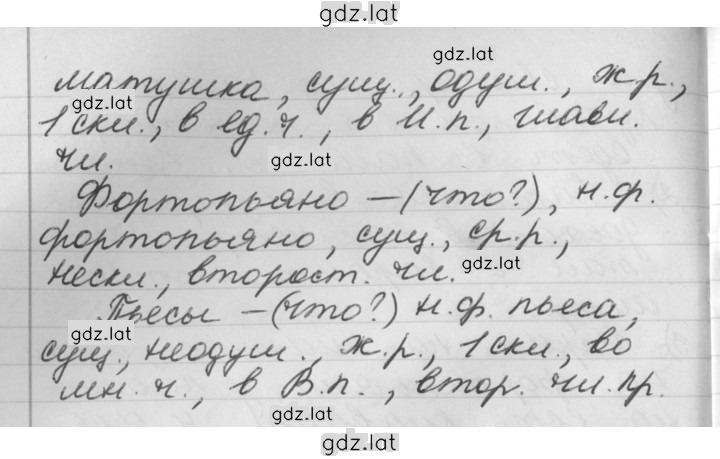 gdz.lat
gdz.lat
матушка, сущ., одуш., ж.р.,
gdz.lat
1 скл., в ед.ч., в И.п., главн.
чл. gdz.lat
Фортопьяно – (что?), н.ф.
фортопьяно, сущ., ср.р.,
нескл., второст. чл. gdz.lat
Пьесы – (что?) н.ф. пьеса,
gdz.lat
сущ., неодуш., ж.р., 1 скл., во
мн. ч., в В.п., втор. чл. пр.
gdz.lat
gdz.lat